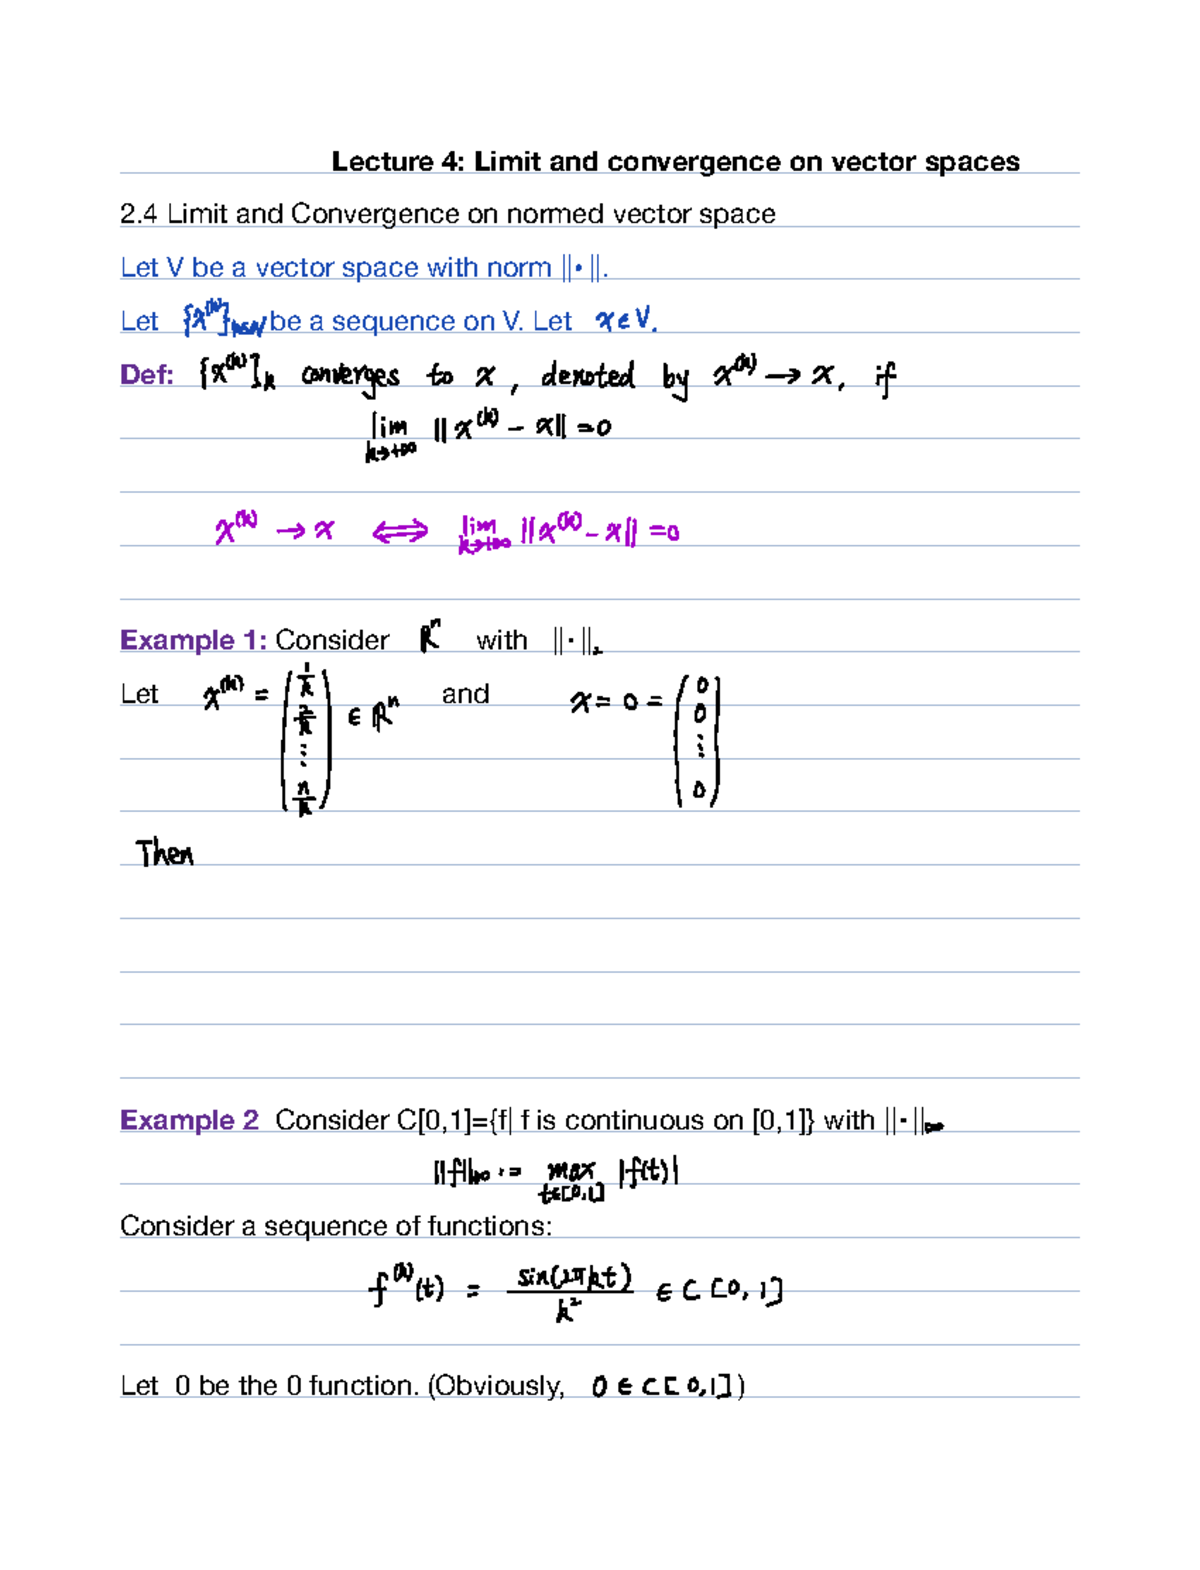 Lecture 4: Limit and convergence on vector spaces
2.4 Limit and Convergence on normed vector space
Let V be a vector space with norm ||·||.
Let {x^(k)}_{k∈N} be a sequence on V. Let x∈V.
Def: {x^(k)}_k converges to x, denoted by x^(k) → x, if
lim_{k→+∞} ||x^(k) − x|| = 0
x^(k) → x ⟺ lim_{k→+∞} ||x^(k) − x|| = 0
Example 1: Consider R^n with ||·||_2
Let x^(k) = (1/k, 2/k, ⋮, n/k) ∈ R^n and x = 0 = (0, 0, ⋮, 0)
Then
Example 2 Consider C[0,1]={f| f is continuous on [0,1]} with ||·||_∞
||f||_∞ := max_{t∈[0,1]} |f(t)|
Consider a sequence of functions:
f^(k)(t) = sin(2πkt)/k^2 ∈ C[0,1]
Let 0 be the 0 function. (Obviously, 0 ∈ C[0,1])